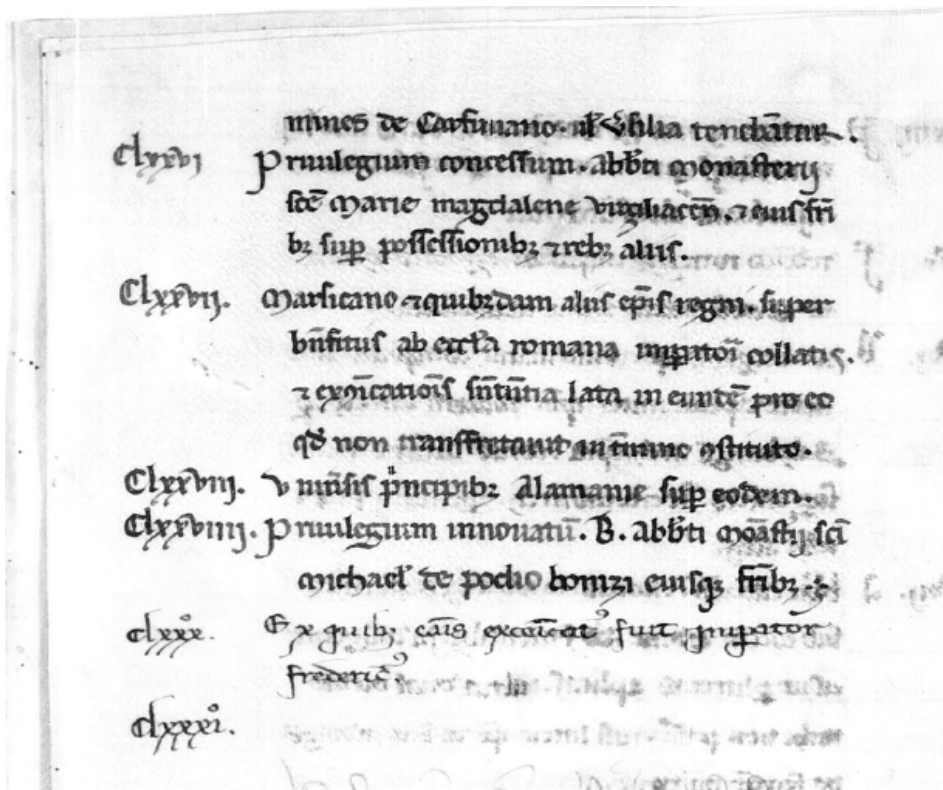 mines de Carfiniano. ul Ursilia tenebãtur.
Clxxvi Priuilegium concessum. abbti Monasterij
scẽ Marie magdalene Virgiliacen̄. ⁊ eius frı̃
bꝫ suꝑ possessionibꝫ ⁊ rebꝫ aliis.
Clxxvii. Marsicano ⁊ quibꝫdam aliis ep̃is regni. super
bn̄fitiis ab eccl̃a romana imꝑatoı̃ collatis.
⁊ exꝯı̃catiõis sn̄tn̄tia lata in euntẽ pro eo
qđ non transfretauit in t̃mino ꝯstituto.
Clxxviii. Vniũsis p̃ncipibꝫ Alamanie suꝑ eodem.
Clxxviiii. Priuilegium innouatũ. B. abbti Moãstij scı̃
Michael̃ de podio bonizi eiusqꝫ fr̃ibꝫ
clxxxº. Ex quibꝫ cãis excõicatꝰ fuit imꝑator
fredericꝰ.
Clxxxiº.